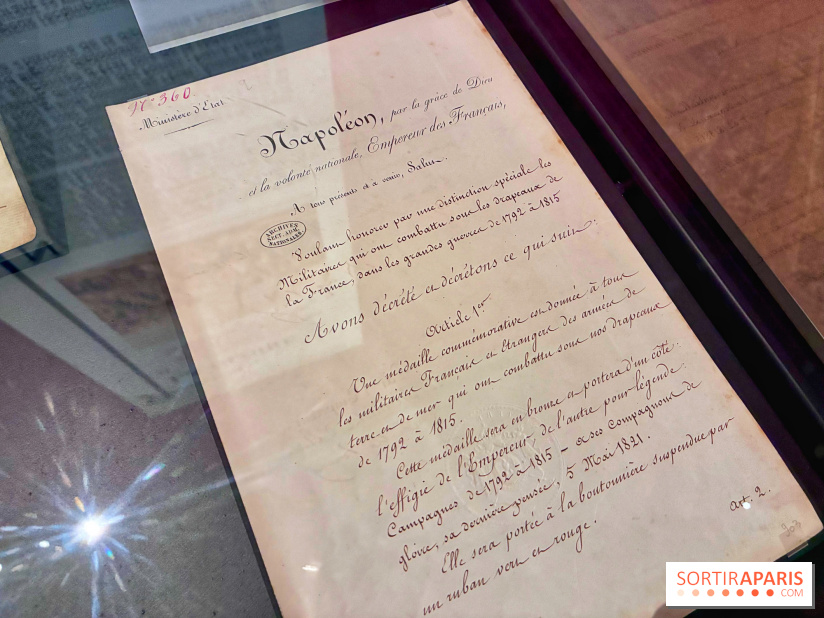 N° 360.
Ministère d'Etat
Napoléon, par la grâce de Dieu
et la volonté nationale, Empereur des Français,
A tous présents et à venir, Salut.
ARCHIVES
SECT. ADM.
NATIONALES
Voulant honorer par une distinction spéciale les
Militaires qui ont combattu sous les drapeaux de
la France, dans les grandes guerres de 1792 à 1815
Avons décrété et décrétons ce qui suit:
Article 1er
Une médaille commémorative est donnée à tous
les militaires Français et étrangers des armées de
terre et de mer qui ont combattu sous nos drapeaux
de 1792 à 1815.
Cette médaille sera en bronze et portera d'un côté
l'effigie de l'Empereur, de l'autre pour légende:
Campagnes de 1792 à 1815 - à ses compagnons de
gloire, sa dernière pensée, 5 Mai 1821.
Elle sera portée à la boutonnière suspendue par
un ruban vert et rouge.
Art. 2.
SORTIRAPARIS
.COM